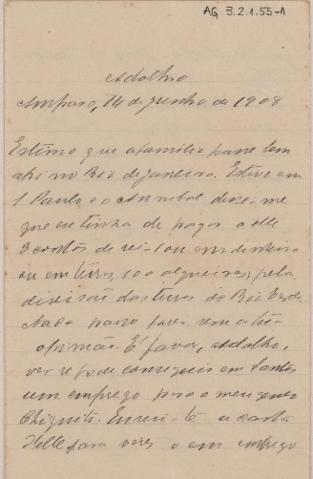 AG 3.2.1.55-1
Adolpho
Amparo, 14 de junho de 1908
Estimo que a familia passe bem
ahi no Rio de Janeiro. Estive em
S. Paulo e o Annibal disse-me
que eu tinha de pagar a elle
3 contos de reis ou em dinheiro
ou em terras, 100 alqueires, pela
divisão das terras do Rio
Nada posso fazer sem a tua
opinião. É favor, Adolpho,
ver se pode conseguir em Santos
um emprego para o meu genro
Chiquito. Envio-te a carta
delle para veres o emprego